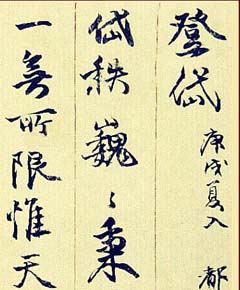 登岱
庚戌夏入都
岱秩巍巍秉
一無所限惟天